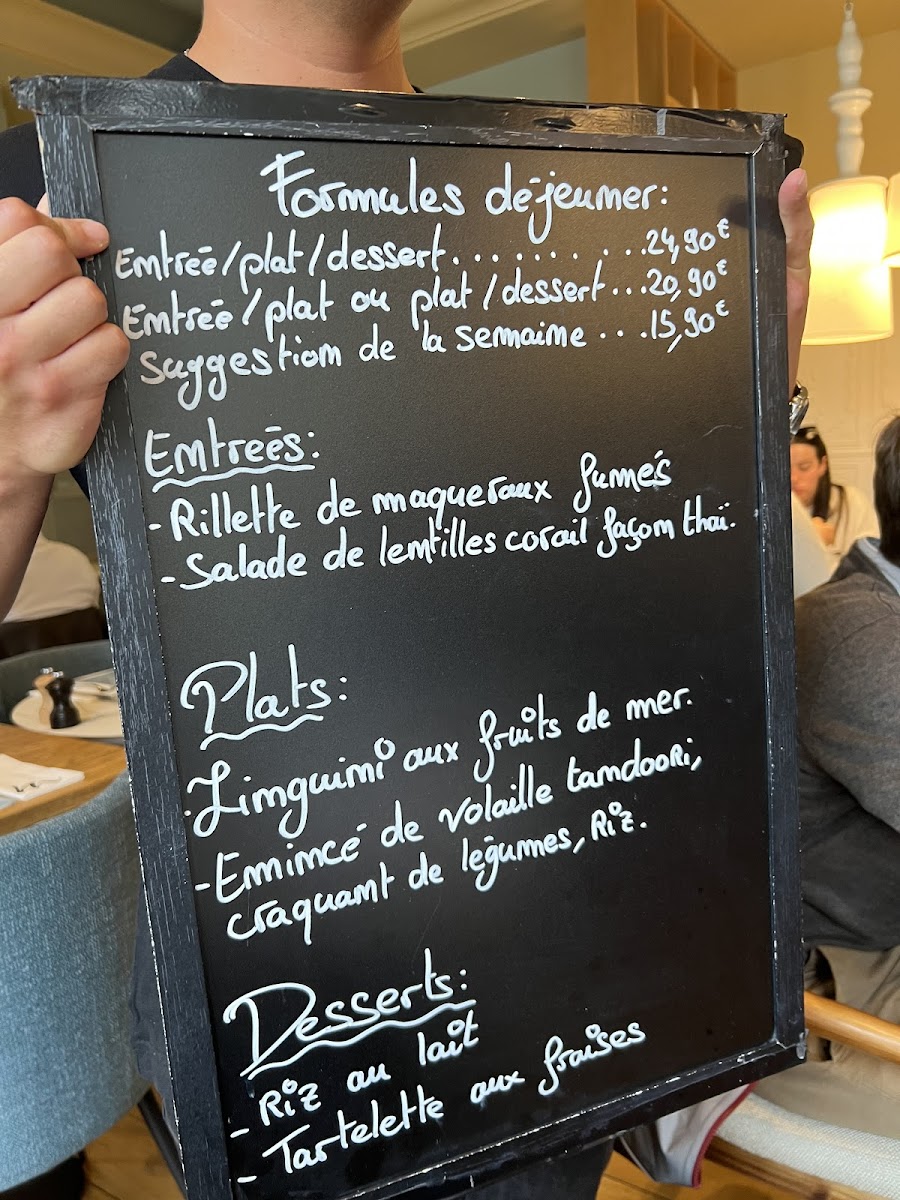 Formules déjeuner:
Entrée/plat/dessert..........24,90€
Entrée/plat ou plat/dessert...20,90€
Suggestion de la semaine ...15,90€
Entreés:
- Rillette de maqueraux fumés
- Salade de lentilles corail façon thaï.
Plats:
- Linguini aux fruits de mer.
- Emincé de volaille tandoori,
craquant de légumes, Riz.
Desserts:
- Riz au lait
- Tartelette aux fraises